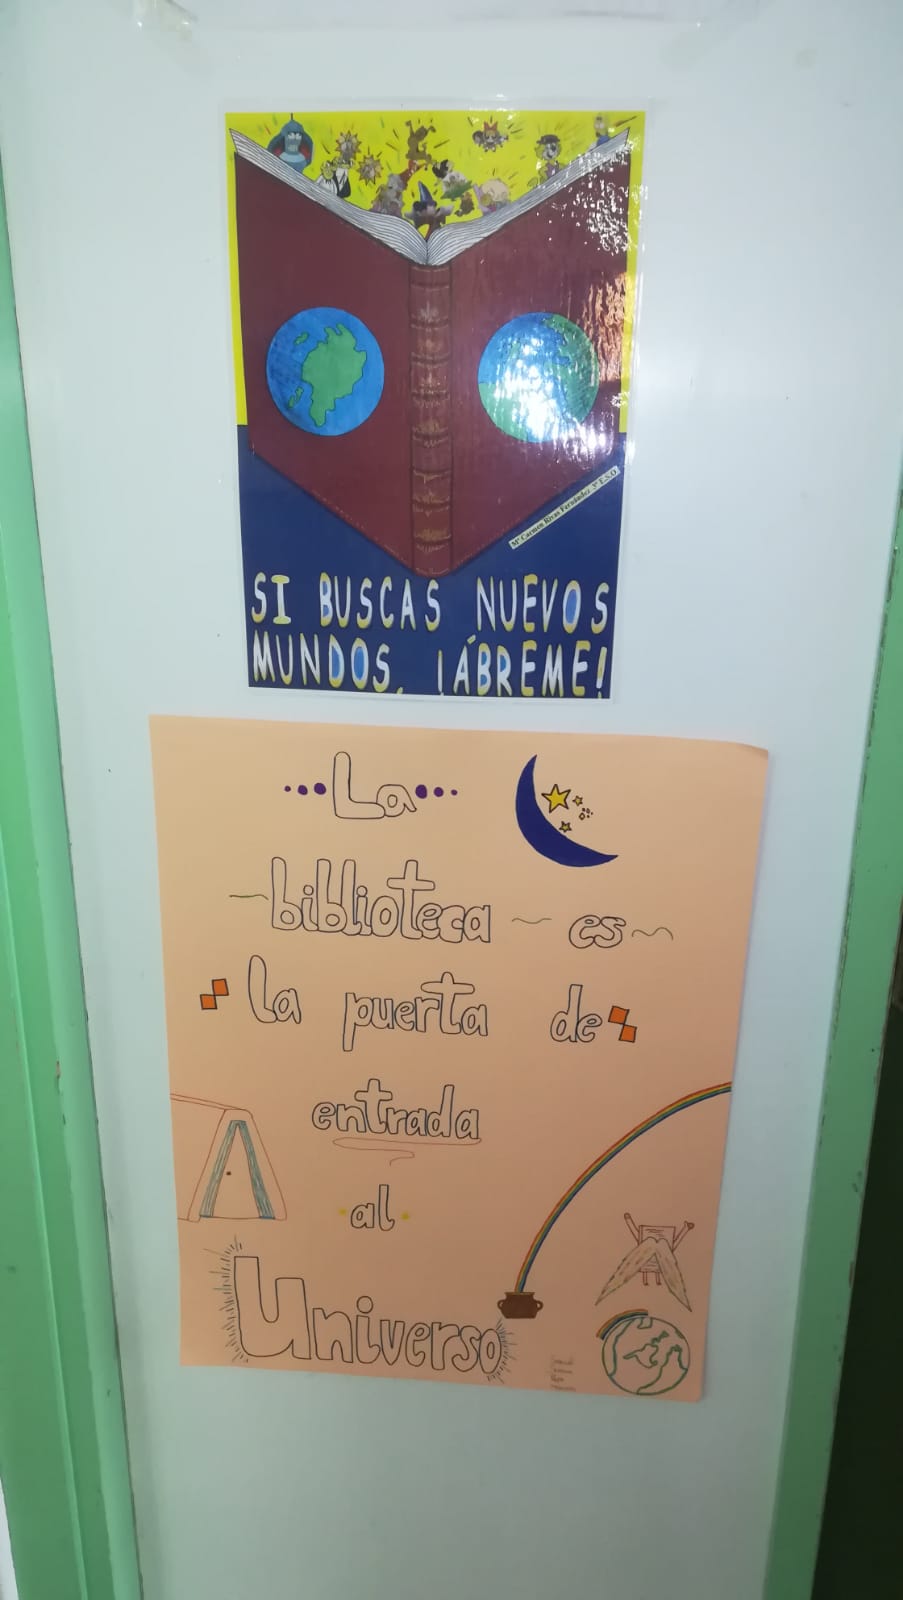 Mª Carmen Rivas Fernández 3º E.S.O.
SI BUSCAS NUEVOS
MUNDOS, ¡ÁBREME!
La
biblioteca es
la puerta de
entrada
al
Universo